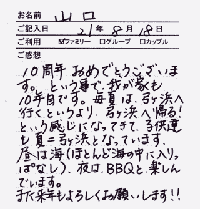 お名前 山口
ご記入日 21年8月18日
ご利用 ☑ファミリー ログループ ロカップル
ご感想
10周年おめでとうございま
す。という事で、我が家も
10年目です。毎夏は、弓ヶ浜へ
行くというより、弓ヶ浜へ帰る!
という感じになってきて、子供達
も夏=弓ヶ浜となっています。
昼は海(ほとんど海の中に入りっ
ぱなし)、夜はBBQと楽しん
でいます。
また来年もよろしくお願いします!!